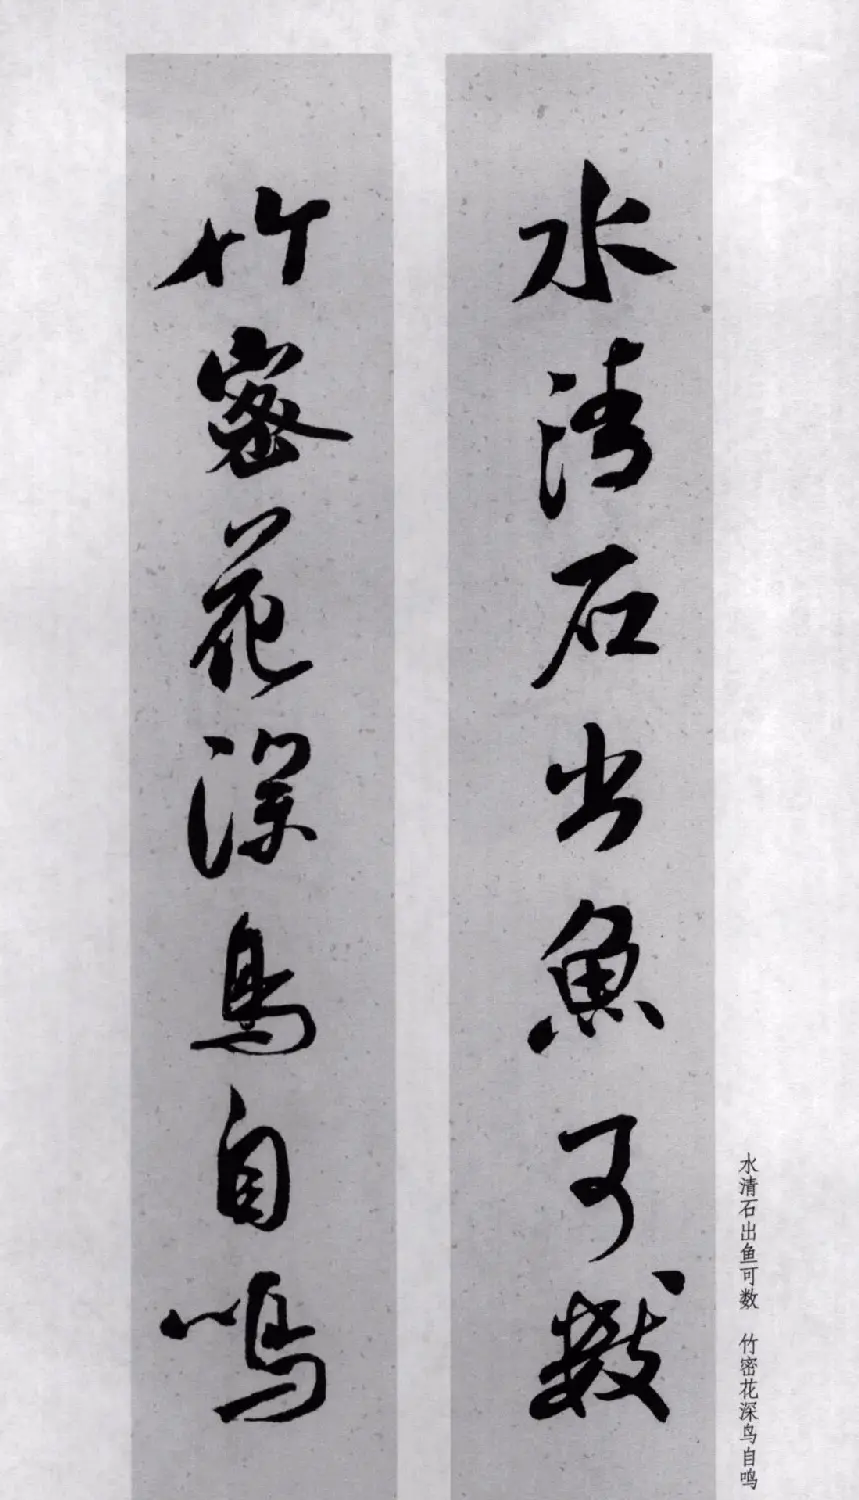 水清石出魚可數
竹密花深鳥自鳴
水清石出鱼可数 竹密花深鸟自鸣